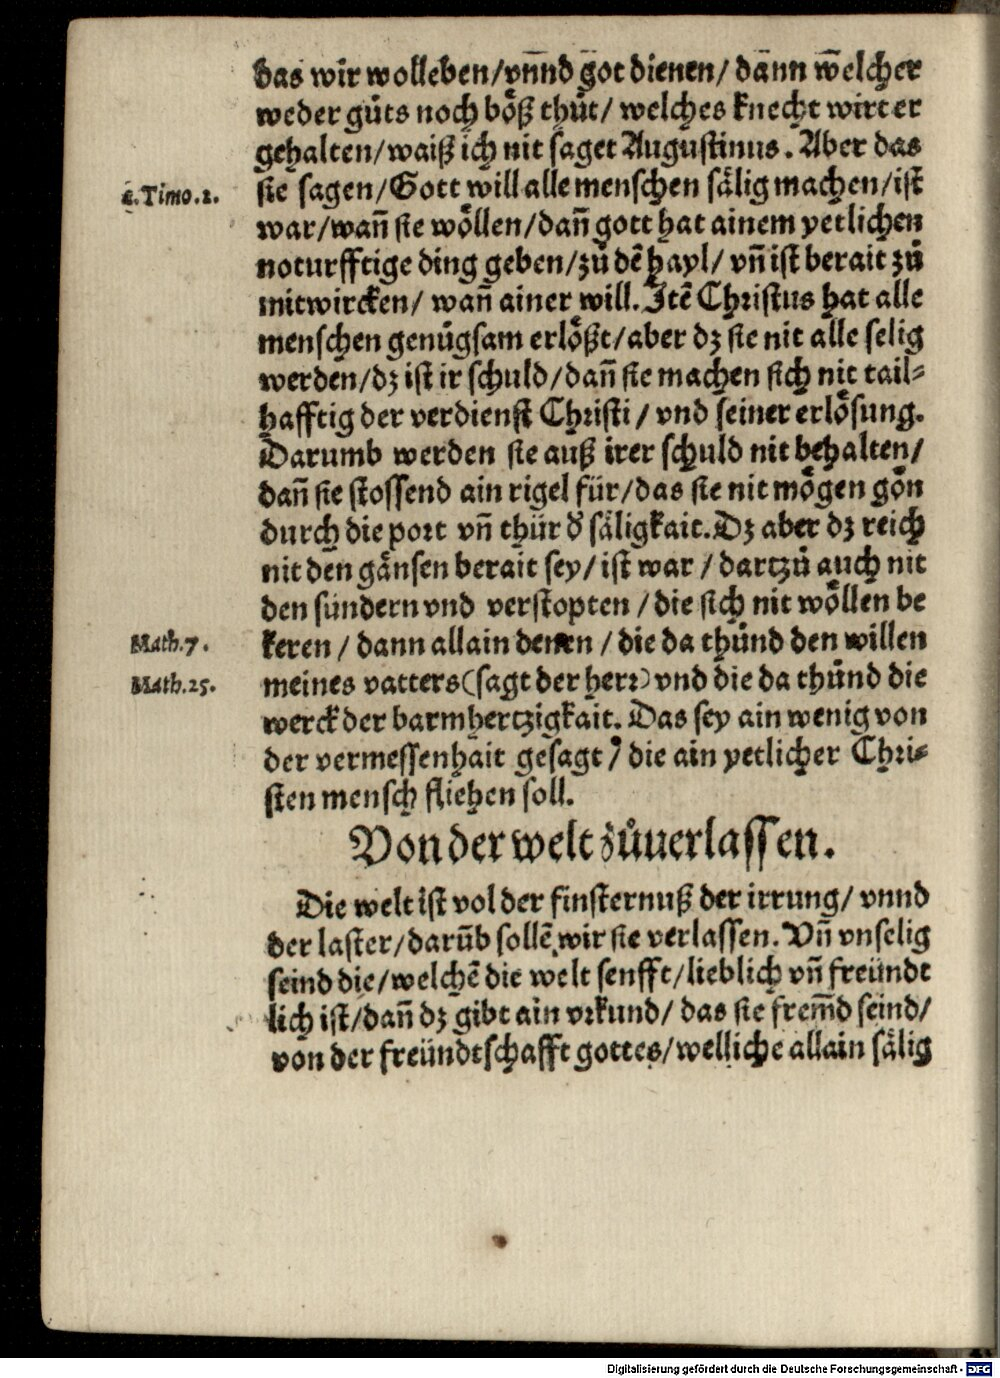 das wir wolleben/vnnd got dienen/ dann welcher
weder gůts noch bo̊ß thůt/ welches knecht wirt er
gehalten/waiß ich nit saget Augustinus. Aber das
.Timo.2.
sie sagen/Gott will alle menschen sålig machen/ist
war/wañ sie wo̊llen/dañ gott hat ainem yetlichen
noturfftige ding geben/zů dẽ hayl/ vñ ist berait zů
mitwircken/ wañ ainer will. Itẽ Christus hat alle
menschen genůgsam erlo̊ßt/aber dz sie nit alle selig
werden/dz ist ir schuld/dañ sie machen sich nit tail⸗
hafftig der verdienst Christi/ vnd seiner erlo̊sung.
Darumb werden sie auß irer schuld nit behalten/
dañ sie stossend ain rigel für/das sie nit mo̊gen go̊n
durch die port vñ thür d̕ såligkait. Dz aber dz reich
nit den gånsen berait sey/ ist war/ dartzů auch nit
den sündern vnd verstopten/ die sich nit wo̊llen be
Math.7.
keren/ dann allain denen/ die da thůnd den willen
Math.25.
meines vatters(sagt der herr) vnd die da thůnd die
werck der barmhertzigkait. Das sey ain wenig von
der vermessenhait gesagt/ die ain yetlicher Chri⸗
sten mensch fliehen soll.
Von der welt zůuerlassen.
Die welt ist vol der finsternuß der irrung/ vnnd
der laster/darũb sollẽ wir sie verlassen. Vñ vnselig
seind die/welchẽ die welt senfft/lieblich vñ freündt
lich ist/dañ dz gibt ain vrkund/ das sie frem̃d seind/
von der freündtschafft gottes/welliche allain sålig
Digitalisierung gefördert durch die Deutsche Forschungsgemeinschaft - DFG